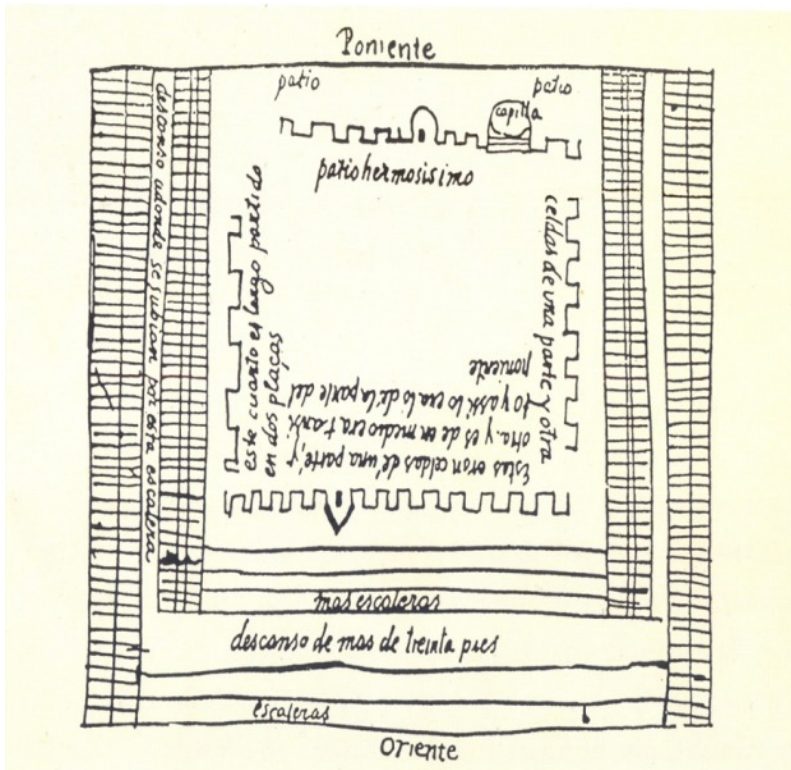 Poniente
patio
patio
capilla
patio hermosisimo
descanso adonde se subian por esta escalera
este cuarto es largo partido
en dos plaças
celdas de vna parte y otra
Estas eran celdas de una parte, y
otra. y es de en medio era tanvi
to y assi lo era lo de la parte del
poniente
mas escaleras
descanso de mas de treinta pies
escaleras
Oriente